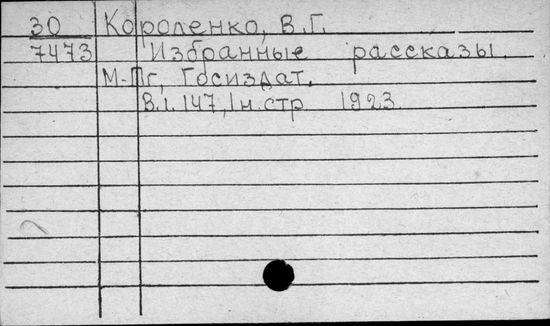 30 Короленко, В.Г.
7473 Избранные рассказы.
М-Пг, Госиздат.
8.i.147, 1н.стр 1923.